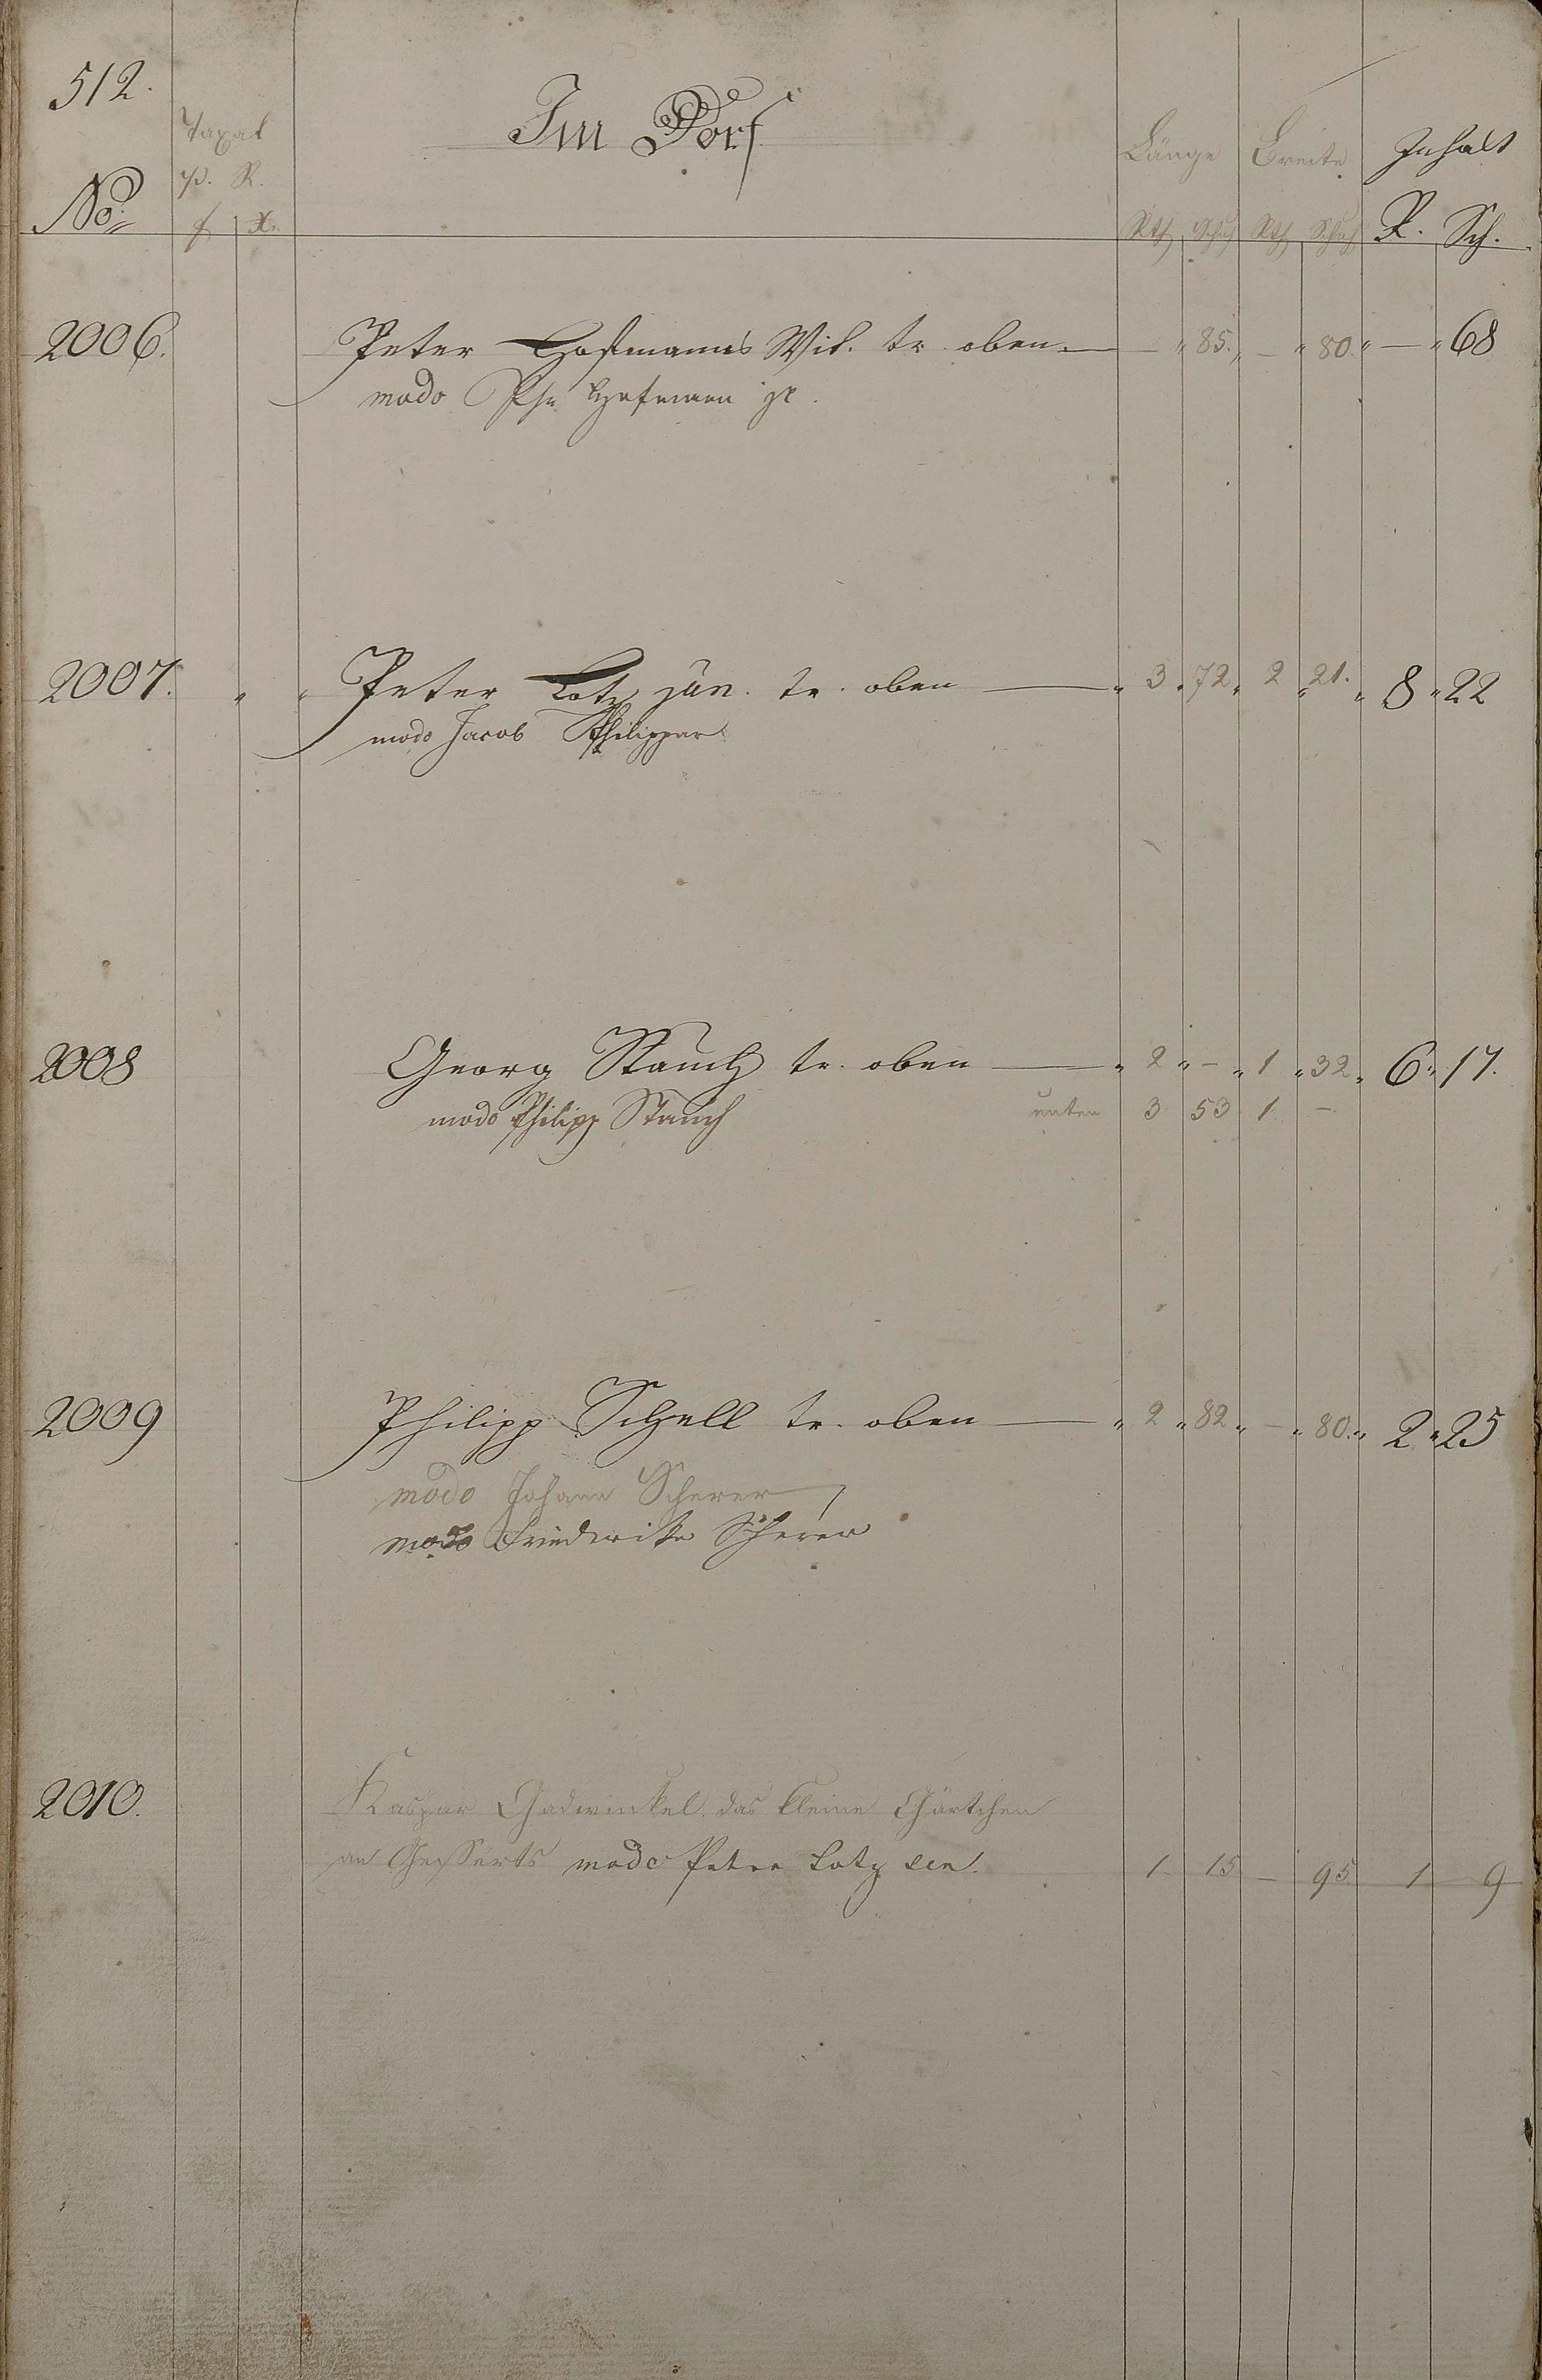 512.
Im Dorf
Taxat
p. R.
Länge Breite Inhalt
No. f x. Rth Schuh Rth Schuh R. Sch.
2006. Peter Hofmanns Wit. tr. oben — „ 85. „ — „ 80. „ — „ 68
modo Phil Hofmann
2007. „ „ Peter Lotz jun. tr. oben — „ 3 „ 72 „ 2 „ 21. „ 8 „ 22
modo Jacob Philippar
2008 Georg Stauch tr. oben — „ 2 „ — „ 1 „ 32 „ 6 „ 17.
modo Philipp Stauch unten 3 53 1 —
2009 Philipp Schell tr. oben — „ 2 „ 82 „ — „ 80. „ 2 „ 25
modo Johann Scherer
modo Friederike Scherer
2010. Kaspar Gadwinkel das kleine Gärtchen
an Geisserts modo Peter Lotz sen. 1 15 — 95 1 9